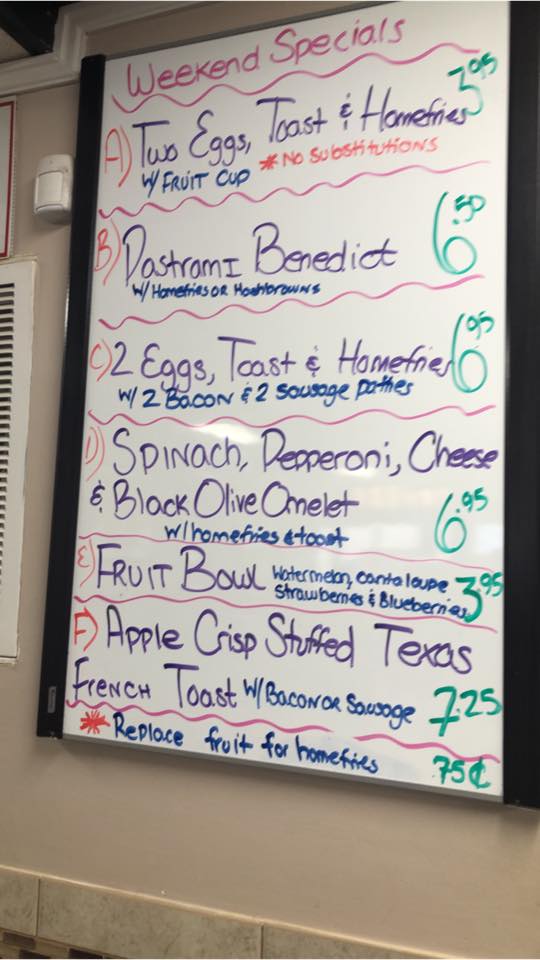 Weekend Specials
A) Two Eggs, Toast & Homefries 3.95
W/ FRUIT CUP * No Substitutions
B) Pastrami Benedict 6.50
W/ Homefries OR Hashbrowns
C) 2 Eggs, Toast & Homefries 6.95
W/ 2 Bacon & 2 Sausage patties
D) Spinach, Pepperoni, Cheese
& Black Olive Omelet 6.95
w/ homefries & toast
E) FRUIT BOWL Watermelon, cantaloupe 3.95
Strawberries & Blueberries
F) Apple Crisp Stuffed Texas
FRENCH Toast W/ Bacon OR Sausage 7.25
* Replace fruit for homefries 75¢